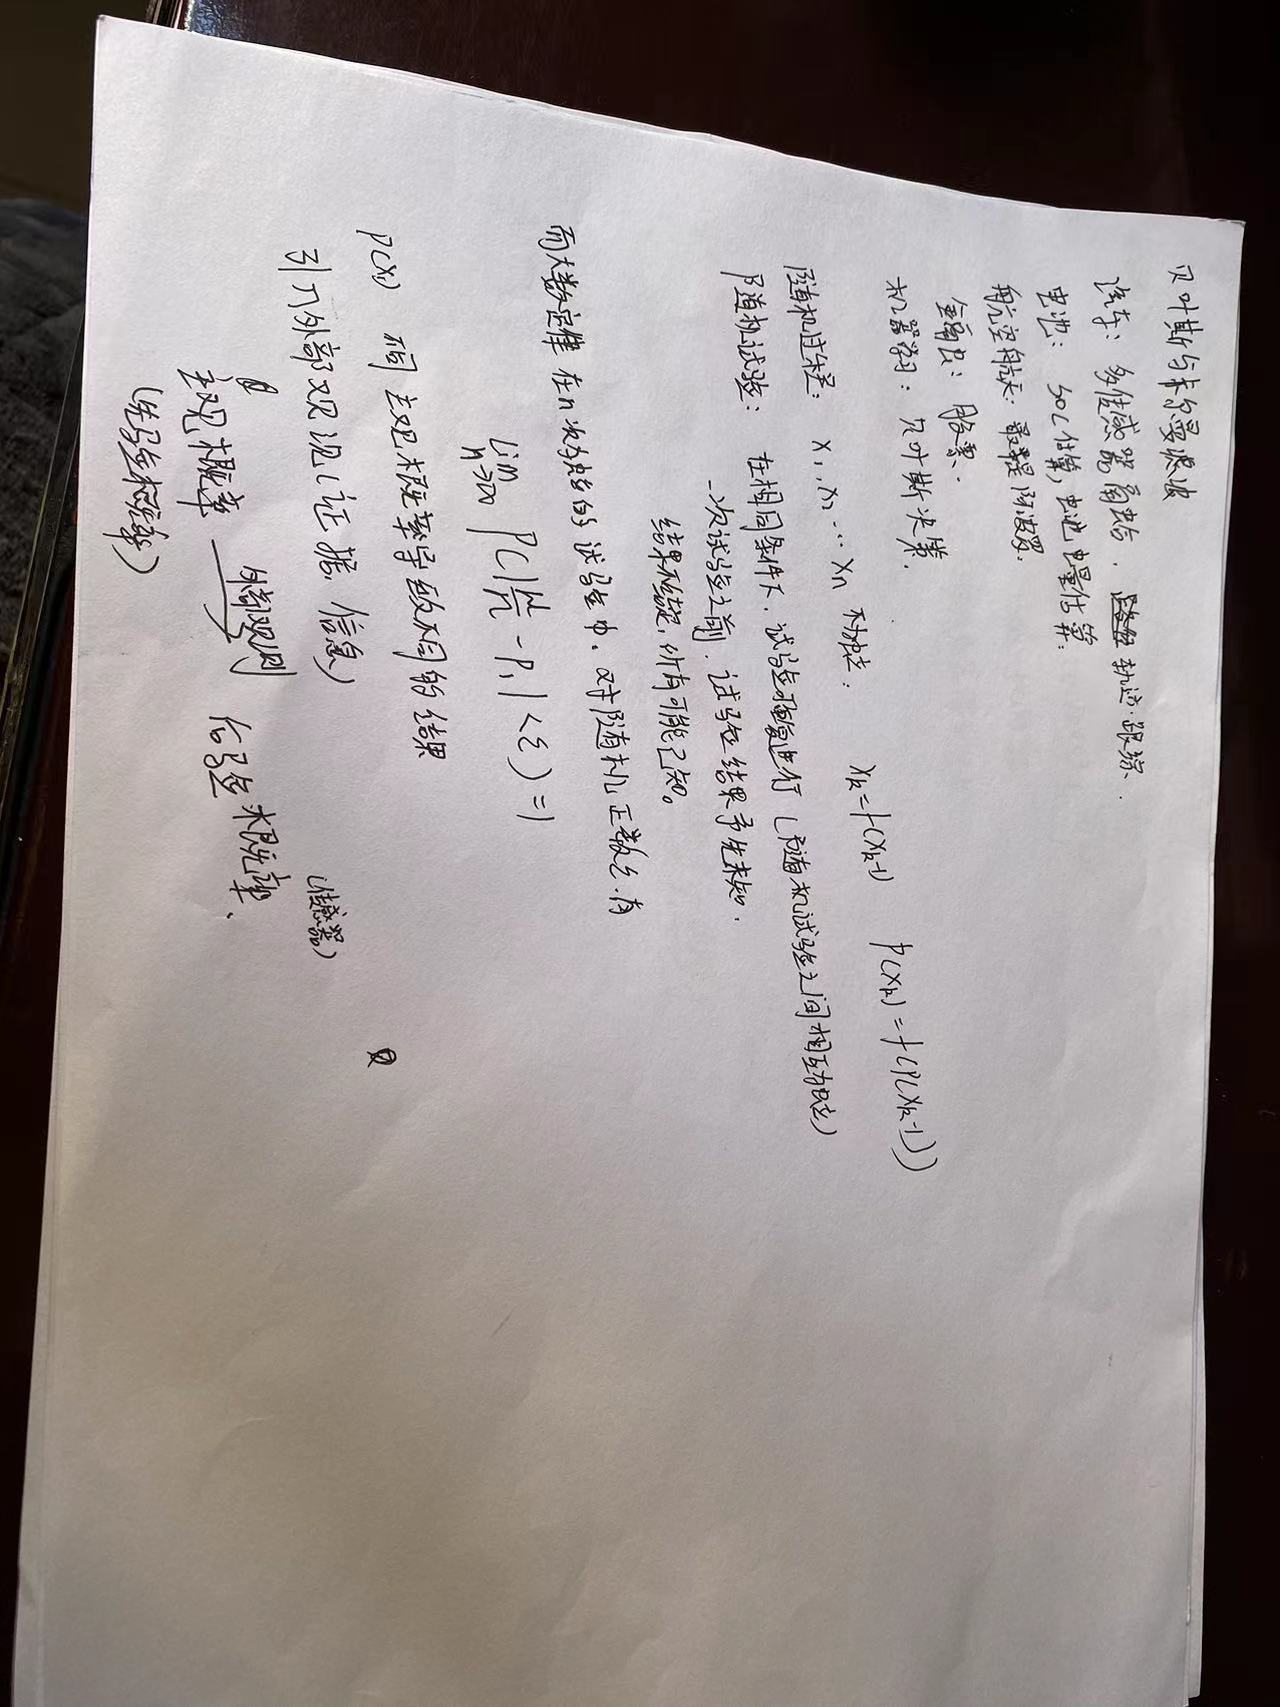 贝叶斯与卡尔曼滤波
汽车：多传感器融合．轨迹跟踪．
电池：SOC估算，电池电量估算．
航空航天：最早是阿波罗．
金融：股票．
机器学习：贝叶斯决策．
随机过程：X₁, X₂ … Xn 不独立． Xk=f(Xk-1) P(Xk)=f(P(Xk-1))
随机试验：在相同条件下．试验可重复进行（随机试验之间相互独立）
一次试验之前．试验结果予先未知．
结果不结定，所有可能已知。
而大数定律 在n次独立的试验中．对随机正数ε．有
lim n→∞ P(|μ/n - P₁|<ε)=1
P(X₁) 不同主观概率导致不同的结果
引入外部观况（证据．信息）
（传感器）
主观概率 外部观测→ 后验概率．
（先验概率）